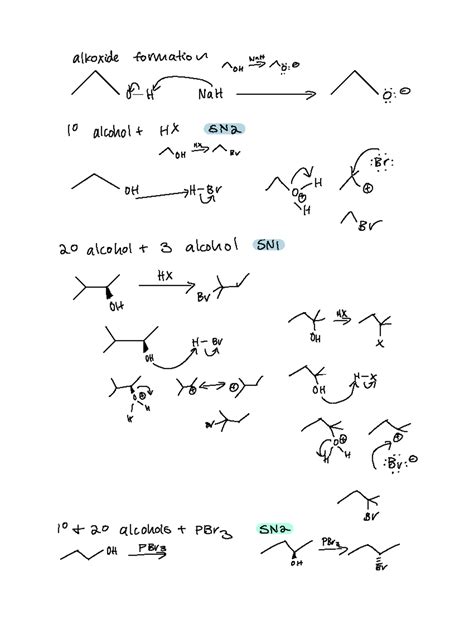 alkoxide formation
OH NaH O: ⊖
O-H NaH O: ⊖
1° alcohol + HX SN2
OH HX Br
:Br: ⊖
OH H-Br O ⊕ H H ⊕
Br
2o alcohol + 3 alcohol SN1
HX
OH Br
HX
OH X
OH H-Br
OH H-X
O ⊕ H H ⊕ ⊕
Br
O ⊕ H H ⊕
:Br: ⊖
Br
1° + 2o alcohols + PBr3 SN2
OH PBr3
OH PBr3 Br